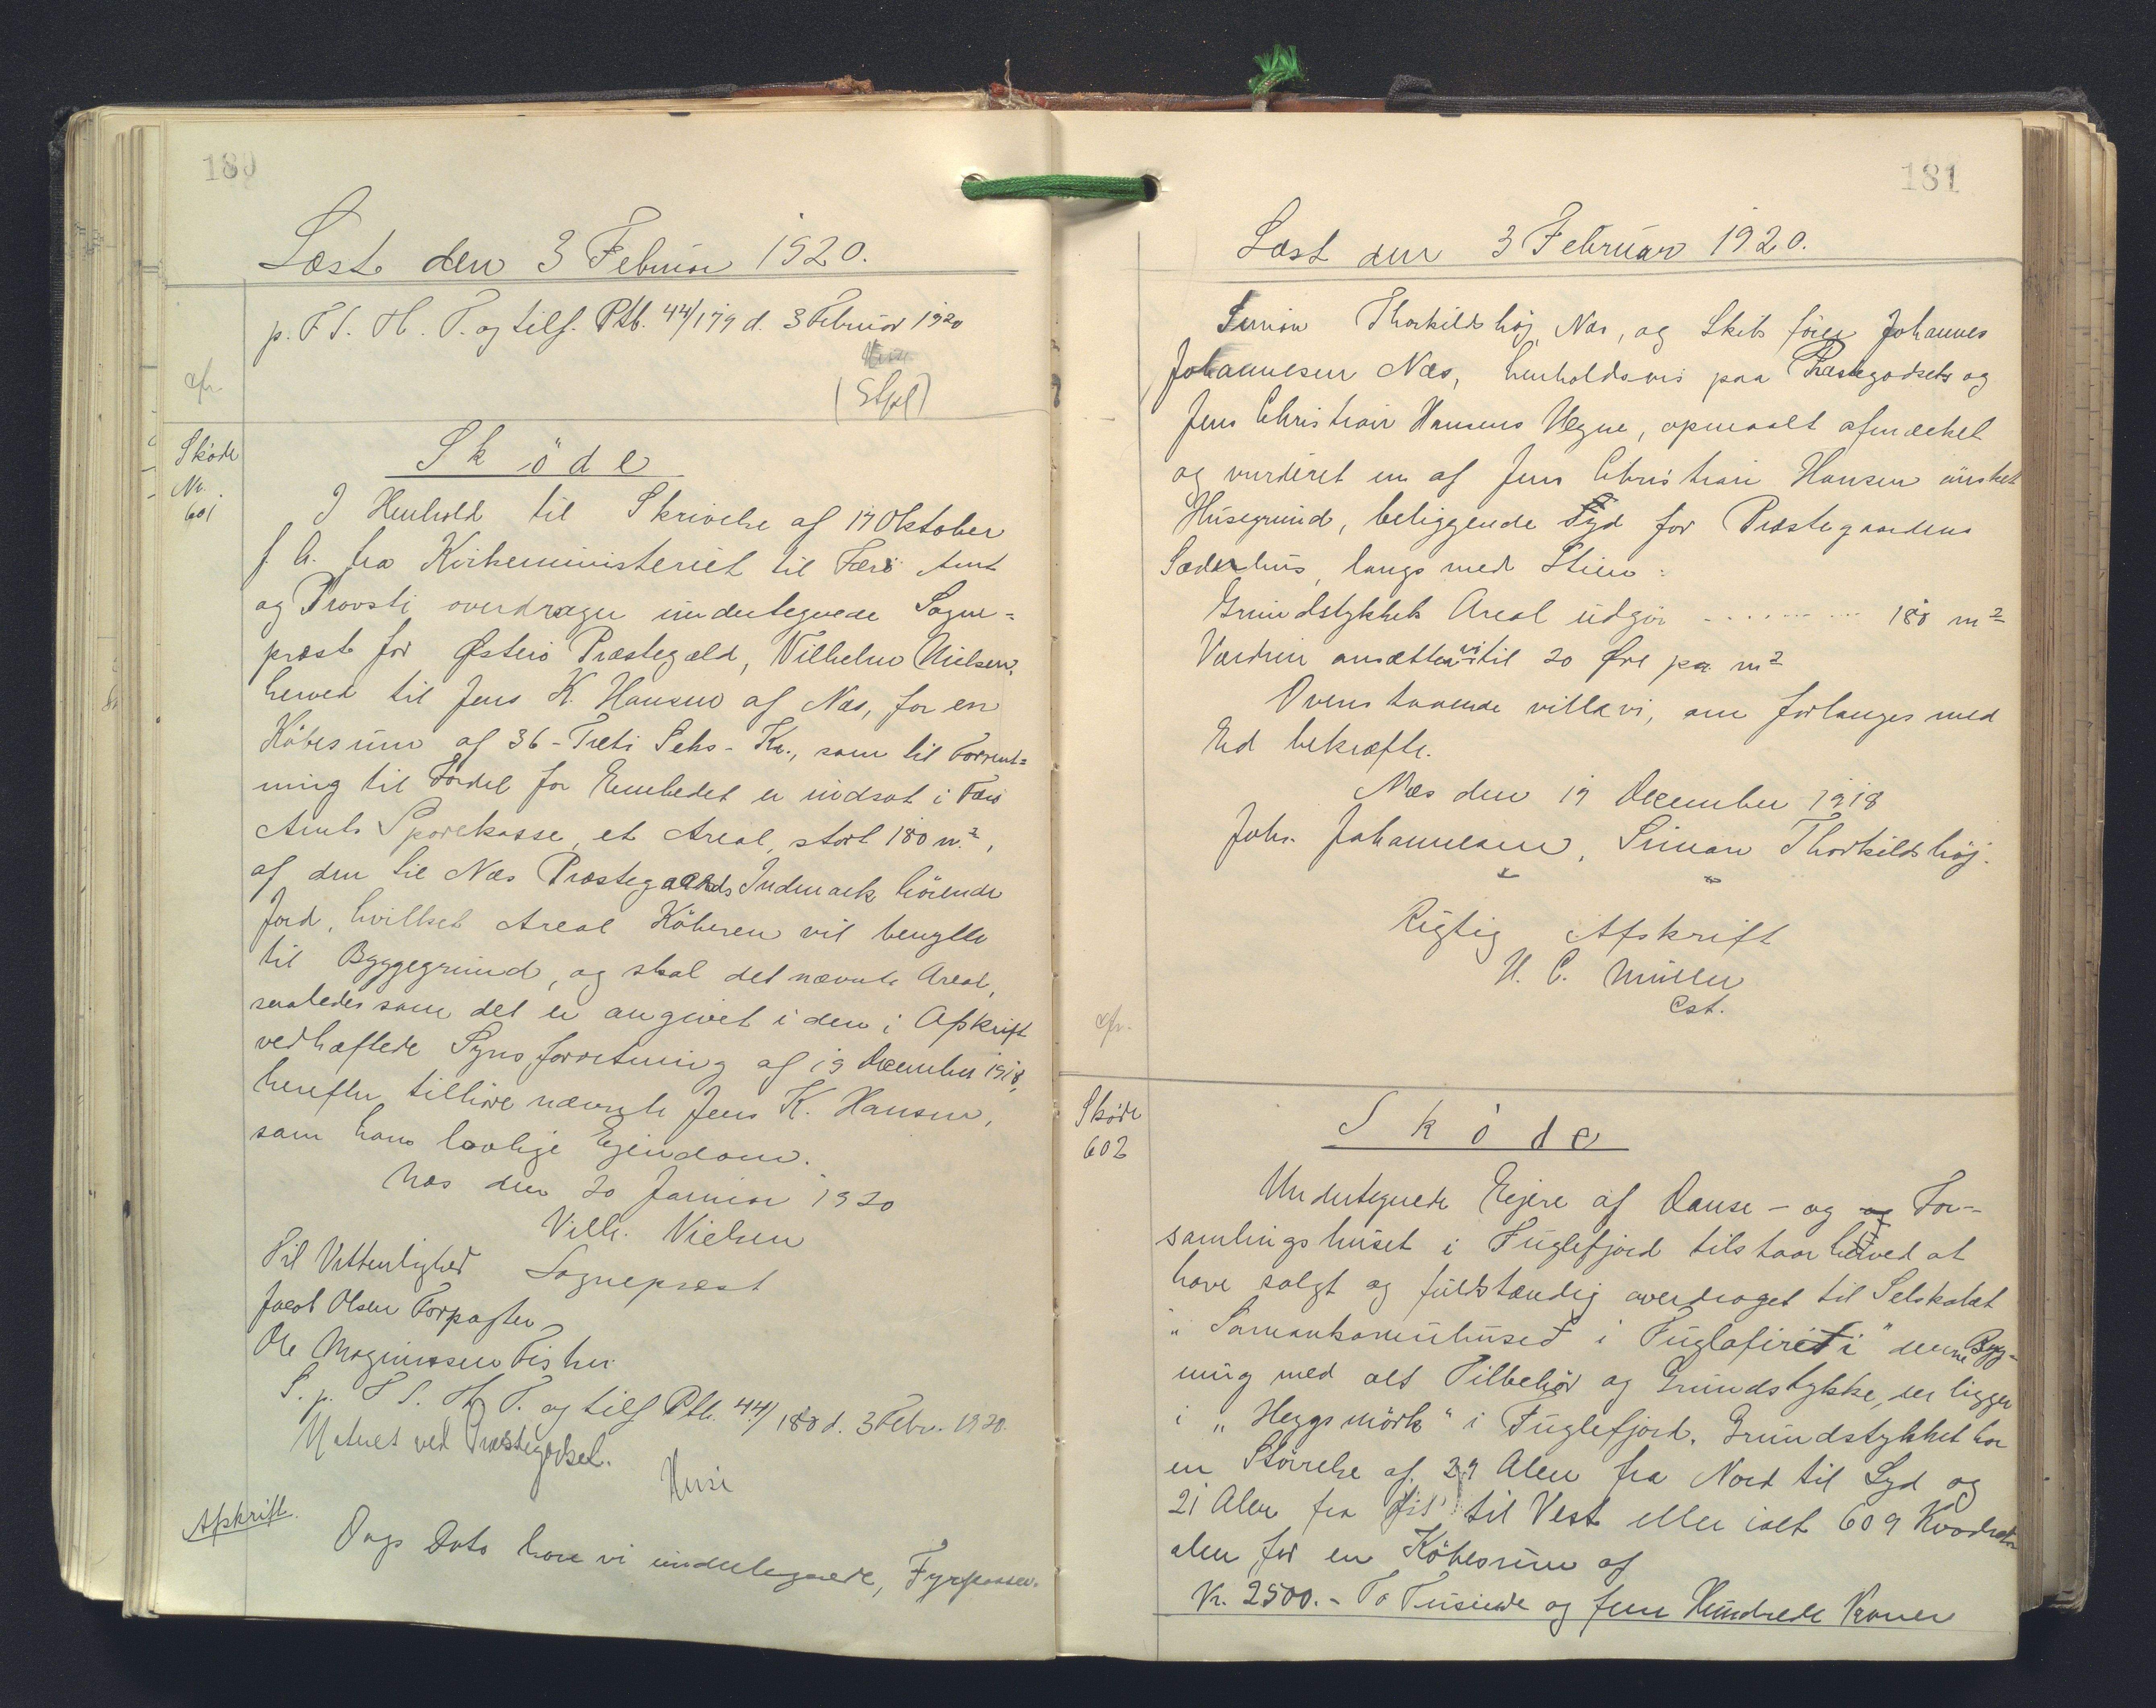 180
Læst den 3 Februar 1920.
p. F. S. H. T. og tilf. Ptb. 44/179 d. 3 Februar 1920
(Stpl)
cfr.
Skøde
Nr.
601
Sköde
I Henhold til Skrivelse af 17 Oktober
f. A. fra Kirkeministeriet til Færö Amt
og Provsti overdrager undertegnede Sogne=
præst for Østerö Præstegæld, Vilhelm Nielsen,
herved til Jens K. Hansen af Næs, for en
Köbesum af 36 - Treti Seks - Kr., som til Forrent=
ning til Fordel for Embedet er indsat i Færö
Amts Sparekasse, et Areal, stort 180 m²,
af den til Næs Præstegaards Indmark hörende
Jord, hvilket Areal Köberen vil benytte
til Byggegrund, og skal det nævnte Areal,
saaledes som det er angivet i den i Afskrift
vedhæftede Synsforretning af 19 December 1918,
herefter tilhöre nævnte Jens K. Hansen,
som hans lovlige Ejendom.
Næs den 20 Januar 1920
Vilh. Nielsen
Sognepræst
Til Vitterlighed
Jacob Olsen Forpagter
Ole Magnussen Fisker
S. p. F. S. H. T. og tilf Ptb. 44/180 d. 3 Febr. 1920.
Noteret ved Præstegodset.
Afskrift.
Dags Dato have vi undertegnede, Fyrpasser
181
Læst den 3 Februar 1920.
Simon Thorkildshöj, Næs, og Skibsfører Johannes
Johannesen Næs, henholdsvis paa Præstegodsets og
Jens Christian Hansens Vegne, opmaalt afmærket
og vurderet en af Jens Christian Hansen ünsket
Husegrund, beliggende Syd for Præstegaardens
Sædehus, langs med Stien:
Grundstykkets Areal udgör ......... 180 m²
Værdien ansætter vi til 20 Øre pr. m²
Ovenstaaende ville vi, om forlanges med
Ed bekræfte.
Næs den 19 December 1918
Johs. Johannesen, Simon Thorkildshöj.
Rigtig Afskrift
H. C. Müller
cst.
cfr.
Sköde
602
Sköde
Undertegnede Ejere af Danse - og og For-
samlingshuset i Fuglefjord tilstaar herved at
have solgt og fuldstændig overdraget til Selskabet
"Samankomuhusið i Fuglafirði" denne Byg-
ning med alt Tilbehör og Grundstykke, der ligger
i "Heygsmörk" i Fuglefjord. Grundstykket har
en Störrelse af 29 Alen fra Nord til Syd og
21 Alen fra Øst til Vest eller ialt 609 Kvadrat
alen for en Köbesum af
Kr. 2500.- To Tusinde og fem Hundrede Kroner